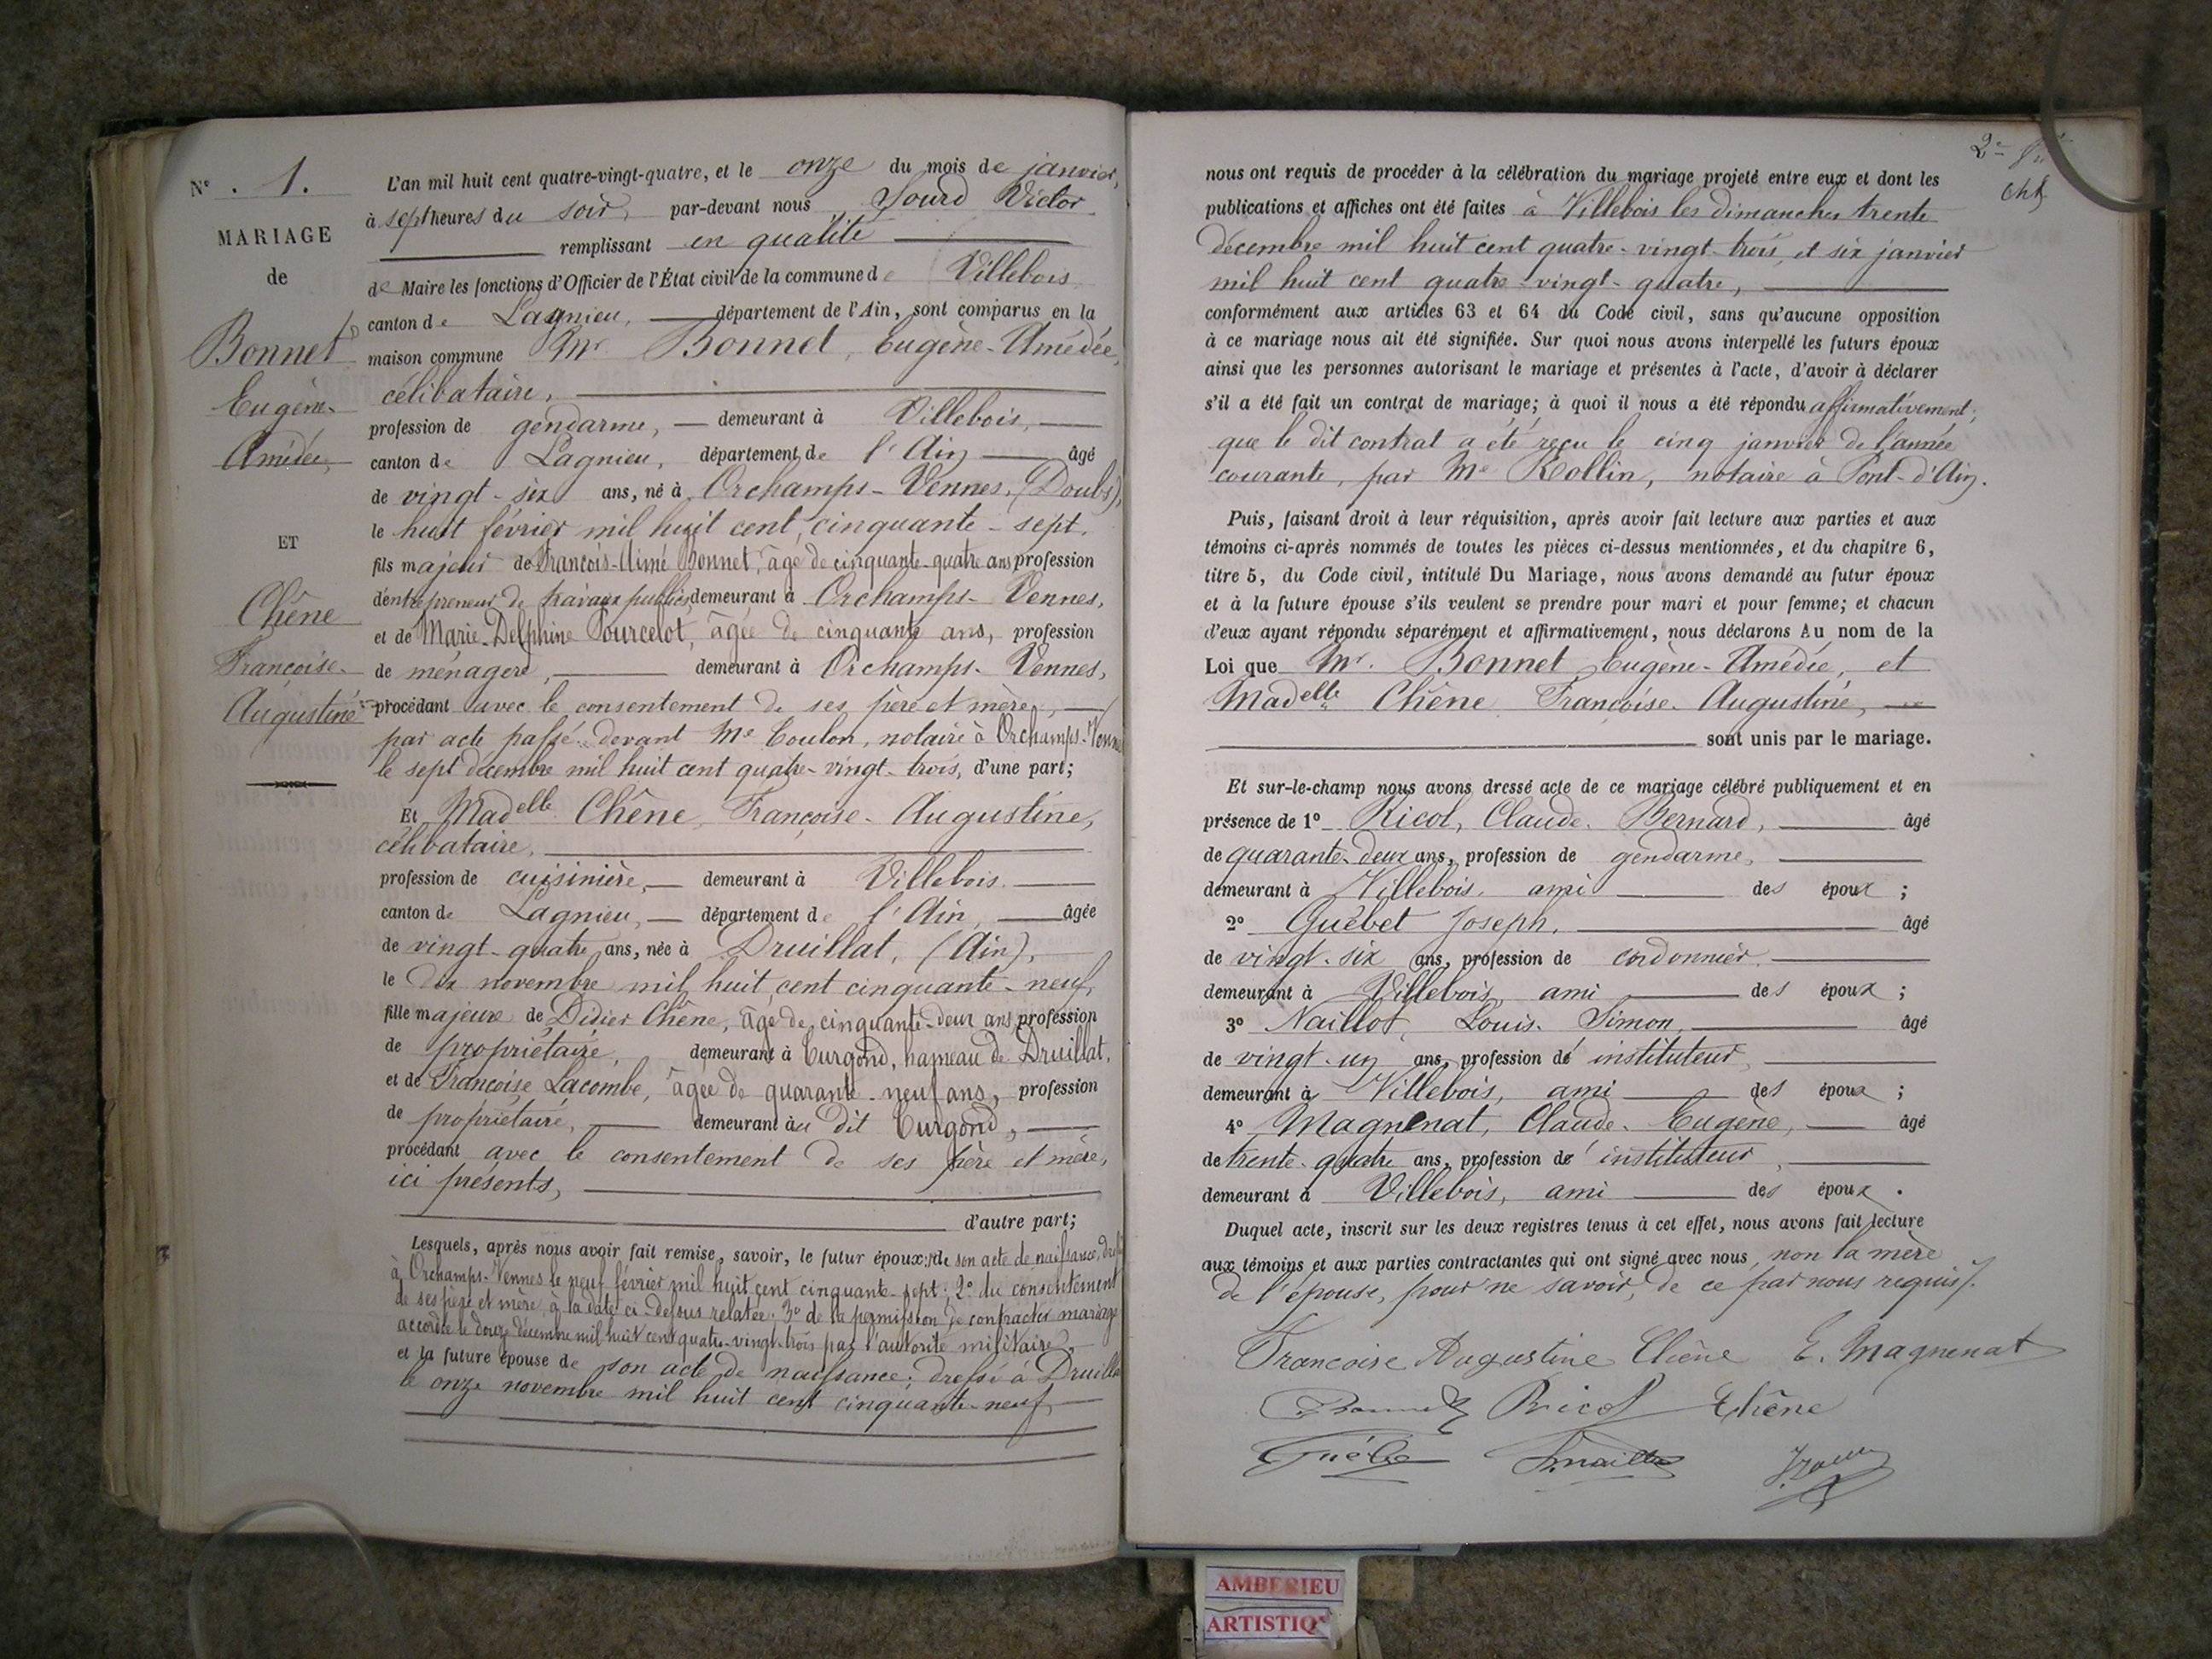 N° . 1.
MARIAGE
de
Bonnet
Eugène-
Amédée,
ET
Chêne
Françoise-
Augustine
L'an mil huit cent quatre-vingt-quatre, et le onze du mois de janvier,
à sept heures du soir, par-devant nous Jourd Victor
remplissant en qualité
de Maire les fonctions d'Officier de l'État civil de la commune de Villebois
canton de Lagnieu, département de l'Ain, sont comparus en la
maison commune Mr. Bonnet, Eugène-Amédée,
célibataire,
profession de gendarme, demeurant à Villebois,
canton de Lagnieu, département de l'Ain âgé
de vingt-six ans, né à Orchamps-Vennes, (Doubs),
le huit février mil huit cent cinquante-sept.
fils majeur de François-Aimé Bonnet, âgé de cinquante-quatre ans profession
d'entrepreneur de travaux publics, demeurant à Orchamps-Vennes,
et de Marie-Delphine Pourcelot, âgée de cinquante ans, profession
de ménagère, demeurant à Orchamps-Vennes,
procédant avec le consentement de ses père et mère,
par acte passé devant Me Coulon, notaire à Orchamps-Vennes
le sept décembre mil huit cent quatre-vingt-trois, d'une part;
Et Madelle Chêne, Françoise-Augustine,
célibataire,
profession de cuisinière, demeurant à Villebois.
canton de Lagnieu, département de l'Ain, âgée
de vingt-quatre ans, née à Druillat, (Ain),
le dix novembre mil huit cent cinquante-neuf,
fille majeure de Didier Chêne, âgé de cinquante-deux ans profession
de propriétaire, demeurant à Turgond, hameau de Druillat,
et de Françoise Lacombe, âgée de quarante-neuf ans, profession
de propriétaire, demeurant au dit Turgond,
procédant avec le consentement de ses père et mère,
ici présents,
d'autre part;
Lesquels, après nous avoir fait remise, savoir, le futur époux: 1° de son acte de naissance, dressé
à Orchamps-Vennes le neuf février mil huit cent cinquante-sept; 2° du consentement
de ses père et mère, à la date ci-dessus relatée; 3° de la permission de contracter mariage
accordée le douze décembre mil huit cent quatre-vingt-trois par l'autorité militaire,
et la future épouse de son acte de naissance; dressé à Druillat
le onze novembre mil huit cent cinquante-neuf,
nous ont requis de procéder à la célébration du mariage projeté entre eux et dont les
publications et affiches ont été faites à Villebois les dimanches trente
décembre mil huit cent quatre-vingt-trois, et six janvier
mil huit cent quatre-vingt-quatre,
conformément aux articles 63 et 64 du Code civil, sans qu'aucune opposition
à ce mariage nous ait été signifiée. Sur quoi nous avons interpellé les futurs époux
ainsi que les personnes autorisant le mariage et présentes à l'acte, d'avoir à déclarer
s'il a été fait un contrat de mariage; à quoi il nous a été répondu affirmativement;
que le dit contrat a été reçu le cinq janvier de l'année
courante, par Me Rollin, notaire à Pont-d'Ain.
Puis, faisant droit à leur réquisition, après avoir fait lecture aux parties et aux
témoins ci-après nommés de toutes les pièces ci-dessus mentionnées, et du chapitre 6,
titre 5, du Code civil, intitulé Du Mariage, nous avons demandé au futur époux
et à la future épouse s'ils veulent se prendre pour mari et pour femme; et chacun
d'eux ayant répondu séparément et affirmativement, nous déclarons Au nom de la
Loi que Mr. Bonnet Eugène-Amédée, et
Madelle Chêne Françoise-Augustine,
sont unis par le mariage.
Et sur-le-champ nous avons dressé acte de ce mariage célébré publiquement et en
présence de 1° Ricol, Claude-Bernard, âgé
de quarante-deux ans, profession de gendarme,
demeurant à Villebois, ami des époux ;
2° Guébet Joseph, âgé
de vingt-six ans, profession de cordonnier.
demeurant à Villebois, ami des époux ;
3° Naillot, Louis-Simon, âgé
de vingt-un ans, profession d' instituteur,
demeurant à Villebois, ami des époux ;
4° Magnenat, Claude-Eugène, âgé
de trente-quatre ans, profession d' instituteur,
demeurant à Villebois, ami des époux .
Duquel acte, inscrit sur les deux registres tenus à cet effet, nous avons fait lecture
aux témoins et aux parties contractantes qui ont signé avec nous, non la mère
de l'épouse, pour ne savoir, de ce par nous requis.
Françoise Augustine Chêne E. Magnenat
Bonnet Ricol Chêne
AMBERIEU
ARTISTIQ